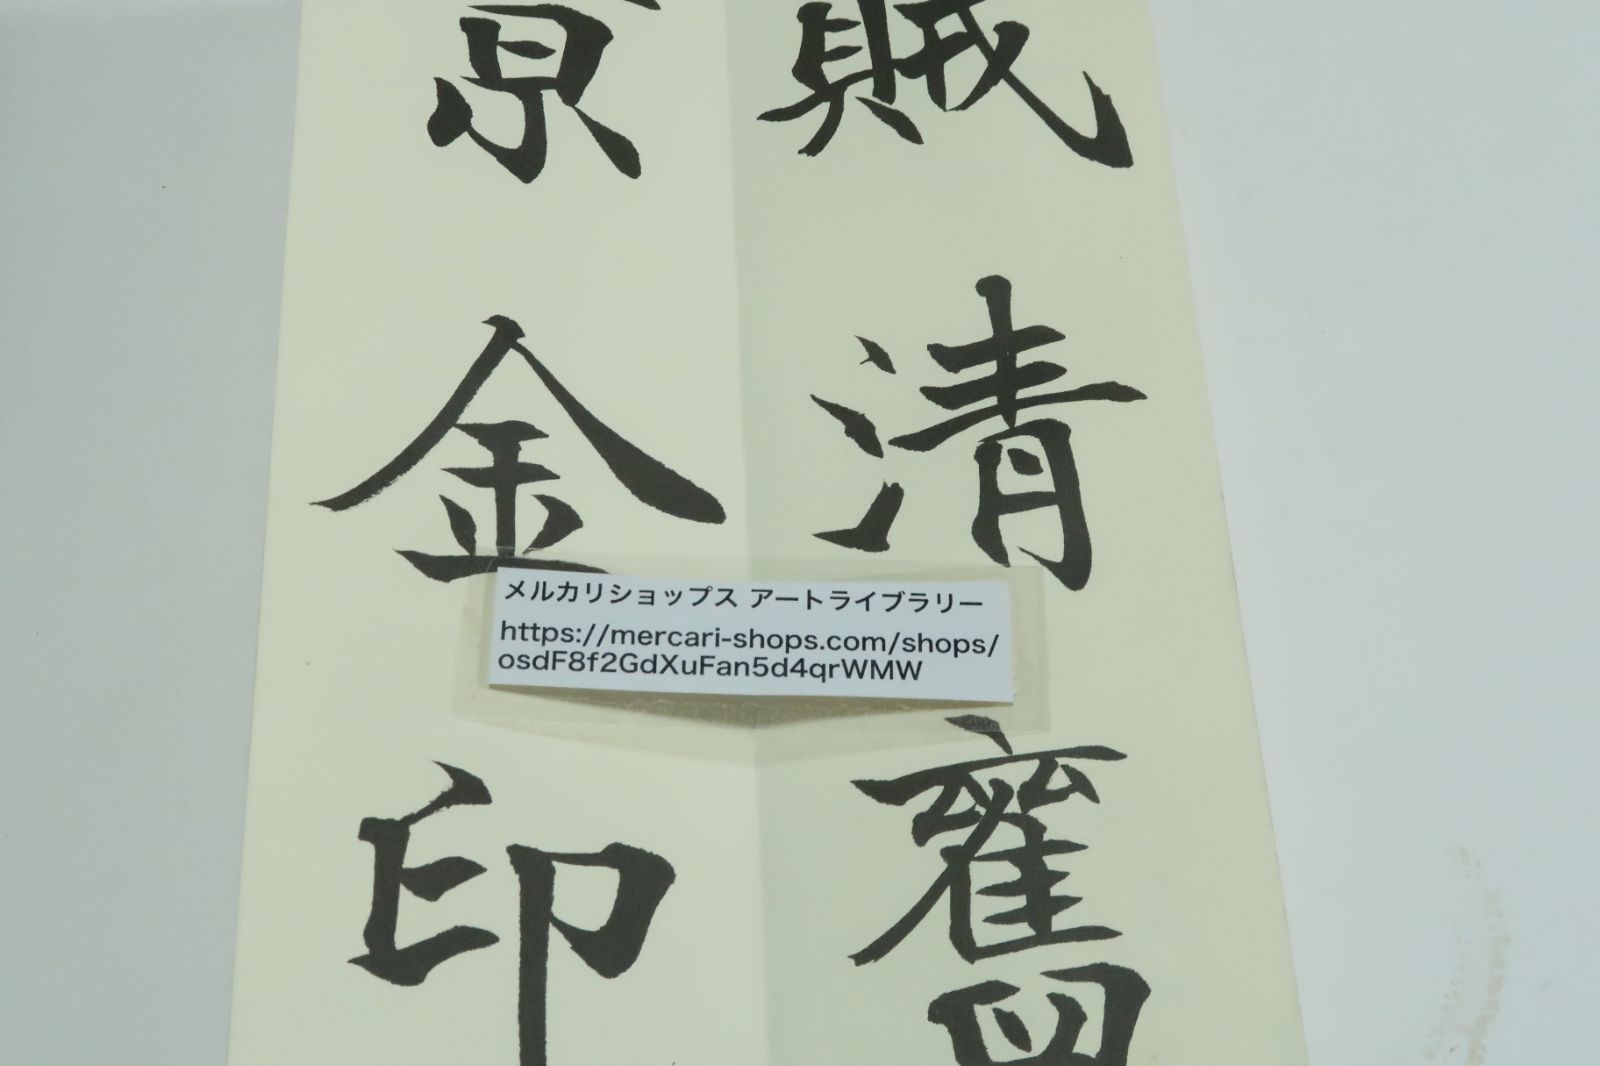 賊清舊
京金印
メルカリショップス アートライブラリー
https://mercari-shops.com/shops/
osdF8f2GdXuFan5d4qrWMW